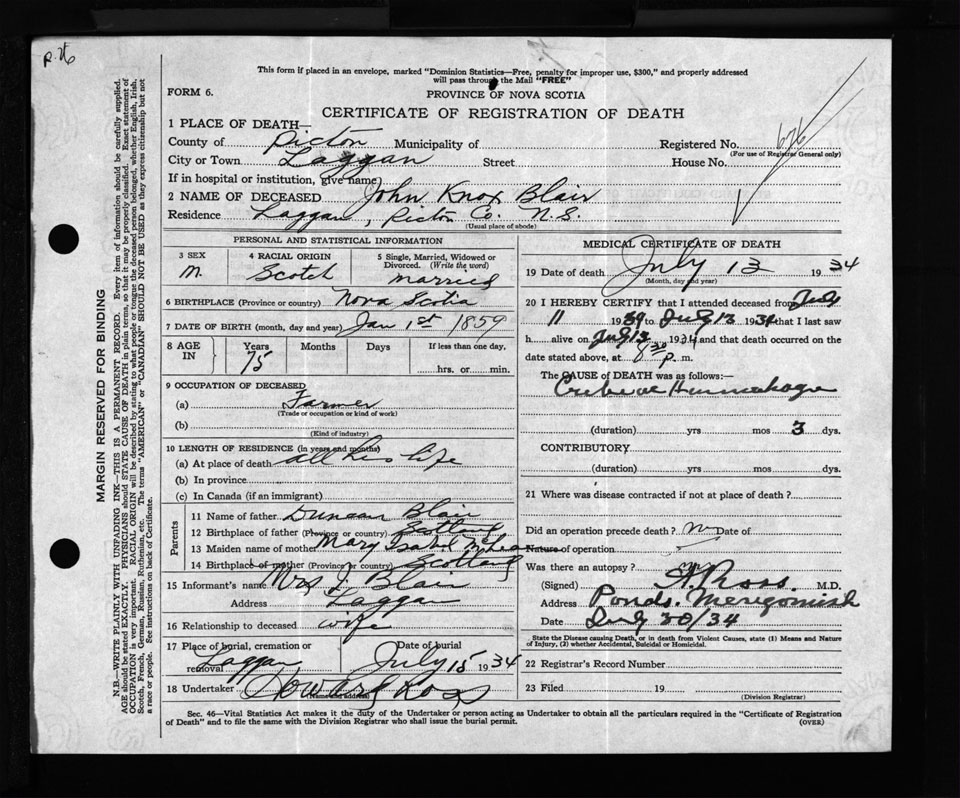 R. 26
This form if placed in an envelope, marked "Dominion Statistics—Free, penalty for improper use, $300," and properly addressed
will pass through the Mail "FREE"
FORM 6.
PROVINCE OF NOVA SCOTIA
CERTIFICATE OF REGISTRATION OF DEATH
1 PLACE OF DEATH—
County of Pictou Municipality of Registered No. 676
(For use of Registrar General only)
City or Town Laggan Street House No.
If in hospital or institution, give name)
2 NAME OF DECEASED John Knox Blair
Residence Laggan, Pictou Co. N.S.
(Usual place of abode)
PERSONAL AND STATISTICAL INFORMATION
3 SEX M. 4 RACIAL ORIGIN Scotch 5 Single, Married, Widowed or Divorced. (Write the word) Married
6 BIRTHPLACE (Province or country) Nova Scotia
7 DATE OF BIRTH (month, day and year) Jan 1st 1859
8 AGE IN Years 75 Months Days If less than one day,
hrs. or min.
9 OCCUPATION OF DECEASED
(a) Farmer
(Trade or occupation or kind of work)
(b)
(Kind of industry)
10 LENGTH OF RESIDENCE (in years and months)
(a) At place of death all his life
(b) In province
(c) In Canada (if an immigrant)
Parents
11 Name of father Duncan Blair
12 Birthplace of father (Province or country) Scotland
13 Maiden name of mother Mary Isabel McLean
14 Birthplace of mother (Province or country) Scotland
15 Informant's name Mrs J. Blair
Address Laggan
16 Relationship to deceased wife
17 Place of burial, cremation or removal Laggan Date of burial July 15 1934
18 Undertaker Howard Ross
MEDICAL CERTIFICATE OF DEATH
19 Date of death July 13 1934
(Month, day and year)
20 I HEREBY CERTIFY that I attended deceased from July
11 1934 to July 13 1934 that I last saw
h alive on July 13 1934 and that death occurred on the
date stated above, at 8 30 p. m.
The CAUSE of DEATH was as follows:—
Cerebral Hemorrhage
(duration) yrs mos 3 dys.
CONTRIBUTORY
(duration) yrs mos dys.
21 Where was disease contracted if not at place of death?
Did an operation precede death? No Date of
Nature of operation
Was there an autopsy? no
(Signed) Ross M.D.
Address Ponds. Merigomish
Date July 30/34
State the Disease causing Death, or in death from Violent Causes, state (1) Means and Nature
of Injury, (2) whether Accidental, Suicidal or Homicidal.
22 Registrar's Record Number
23 Filed 19
(Division Registrar)
Sec. 46—Vital Statistics Act makes it the duty of the Undertaker or person acting as Undertaker to obtain all the particulars required in the "Certificate of Registration
of Death" and to file the same with the Division Registrar who shall issue the burial permit.
(OVER)
MARGIN RESERVED FOR BINDING
N.B.—WRITE PLAINLY WITH UNFADING INK—THIS IS A PERMANENT RECORD. Every item of information should be carefully supplied.
AGE should be stated EXACTLY. PHYSICIANS should STATE CAUSE OF DEATH in plain terms, so that it may be properly classified. Exact statement of
OCCUPATION is very important. RACIAL ORIGIN will be described by stating to what people or tongue the deceased person belonged, whether English, Irish,
Scotch, French, German, Russian, Ruthenian, etc. The terms "AMERICAN" or "CANADIAN" SHOULD NOT BE USED as they express citizenship but not
a race or people. See instructions on back of Certificate.